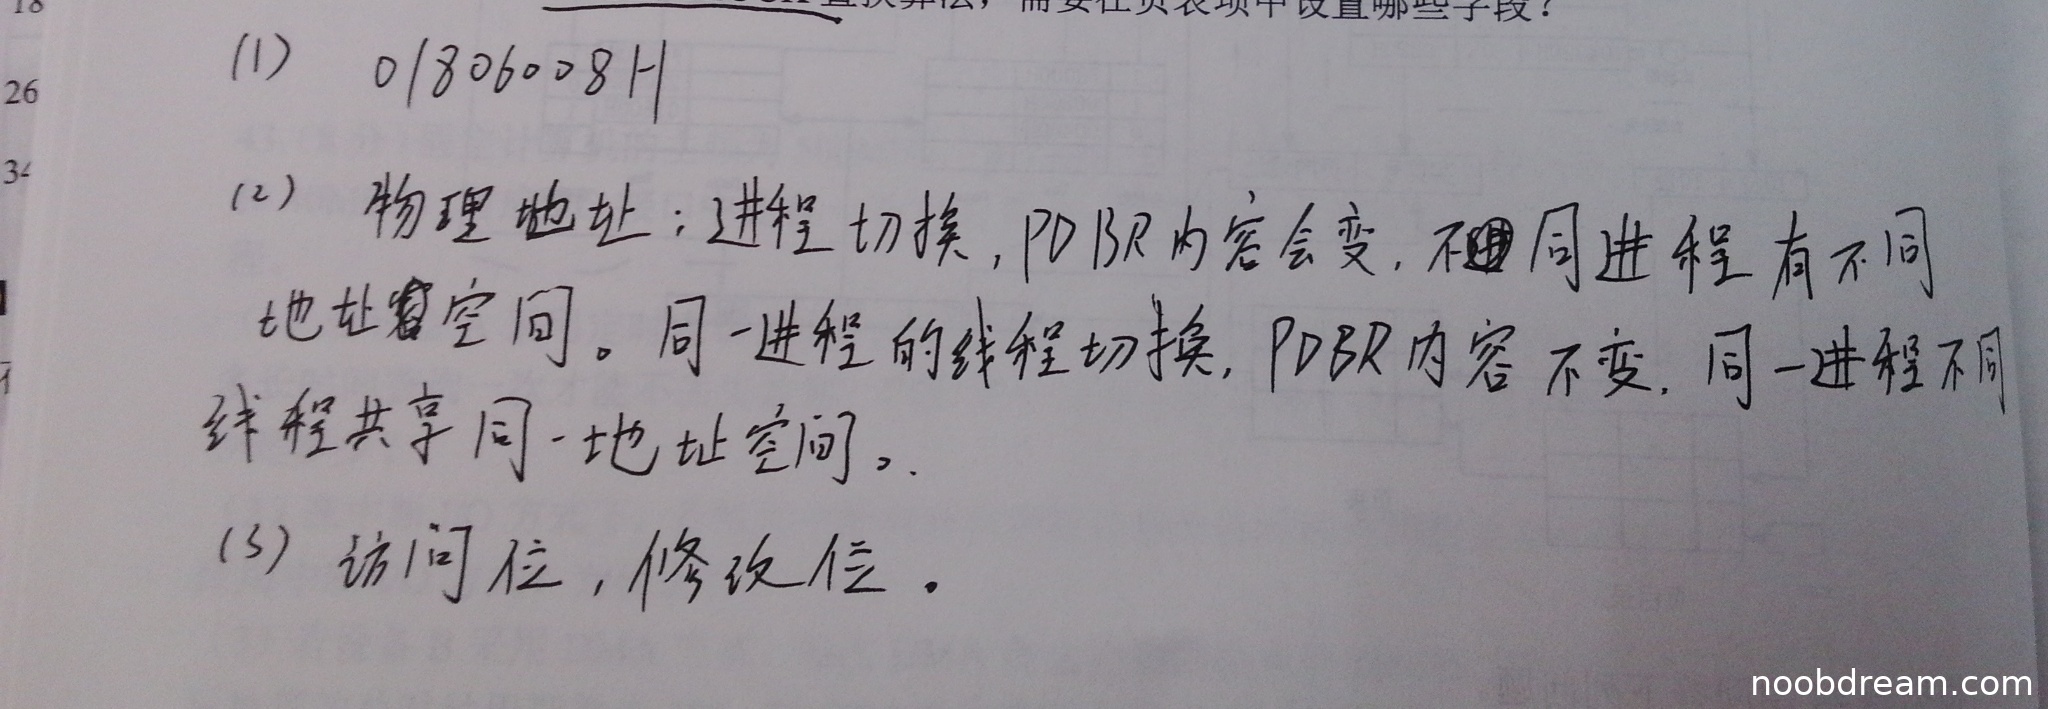 18
置换算法，需要在页表项中设置哪些字段？
(1) 01806008H
26
34
(2) 物理地址：进程切换，PDBR内容会变，不同进程有不同
地址空间。同一进程的线程切换，PDBR内容不变，同一进程不同
线程共享同一地址空间。
(3) 访问位，修改位。
noobdream.com